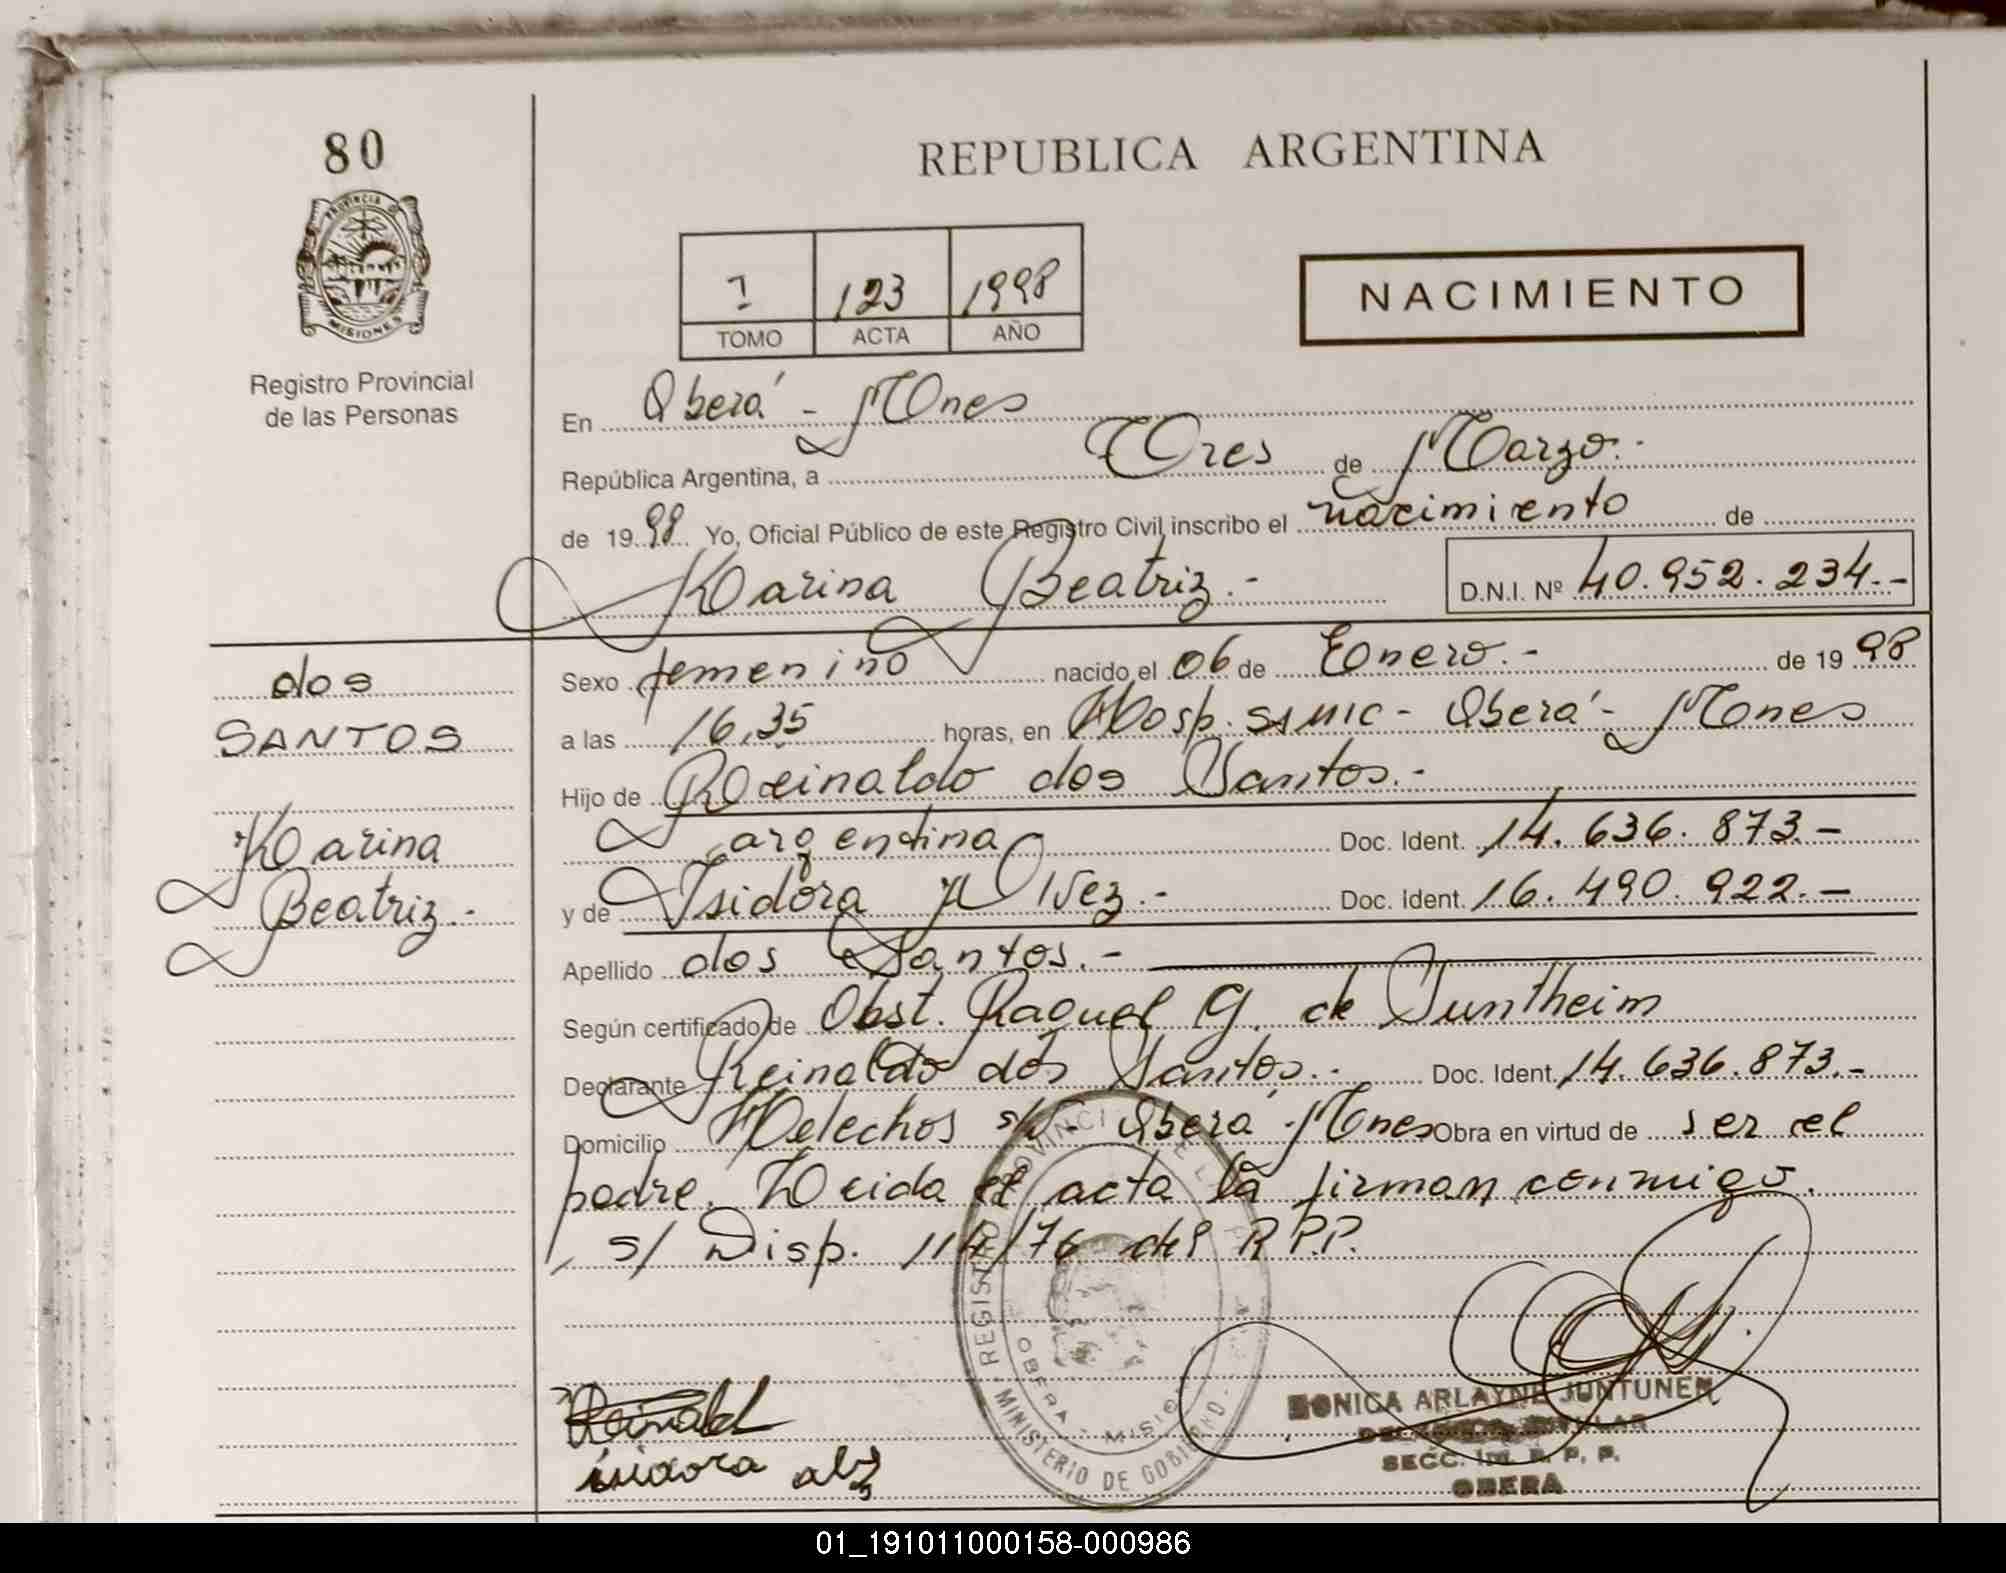 80
REPUBLICA ARGENTINA
PROVINCIA DE
MISIONES
Registro Provincial
de las Personas
I 123 1998
TOMO ACTA AÑO
NACIMIENTO
En Oberá - Mnes
República Argentina, a Tres de Marzo.-
de 1998 Yo, Oficial Público de este Registro Civil inscribo el nacimiento de
Karina Beatriz.- D.N.I. Nº 40.952.234.-
dos
SANTOS
Karina
Beatriz.-
Sexo femenino nacido el 06 de Enero.- de 1998
a las 16,35 horas, en Hosp. SAMIC - Oberá - Mnes
Hijo de Reinaldo dos Santos.-
argentina Doc. Ident. 14.636.873.-
y de Isidora Alvez.- Doc. Ident. 16.490.922.-
Apellido dos Santos.-
Según certificado de Obst. Raquel G. de Suntheim
Declarante Reinaldo dos Santos.- Doc. Ident. 14.636.873.-
Domicilio Helechos s/n - Oberá - Mnes Obra en virtud de ser el
padre. Leida el acta la firman conmigo.
s/ Disp. 114/76 del R.P.P.
Reinald
isidora alvz
REGISTRO PROVINCIAL DE L P
OBERA - MISIONES
MINISTERIO DE GOBIERNO
MONICA ARLAYNE JUNTUNEN
SECC. R. P. P.
OBERA
01_191011000158-000986